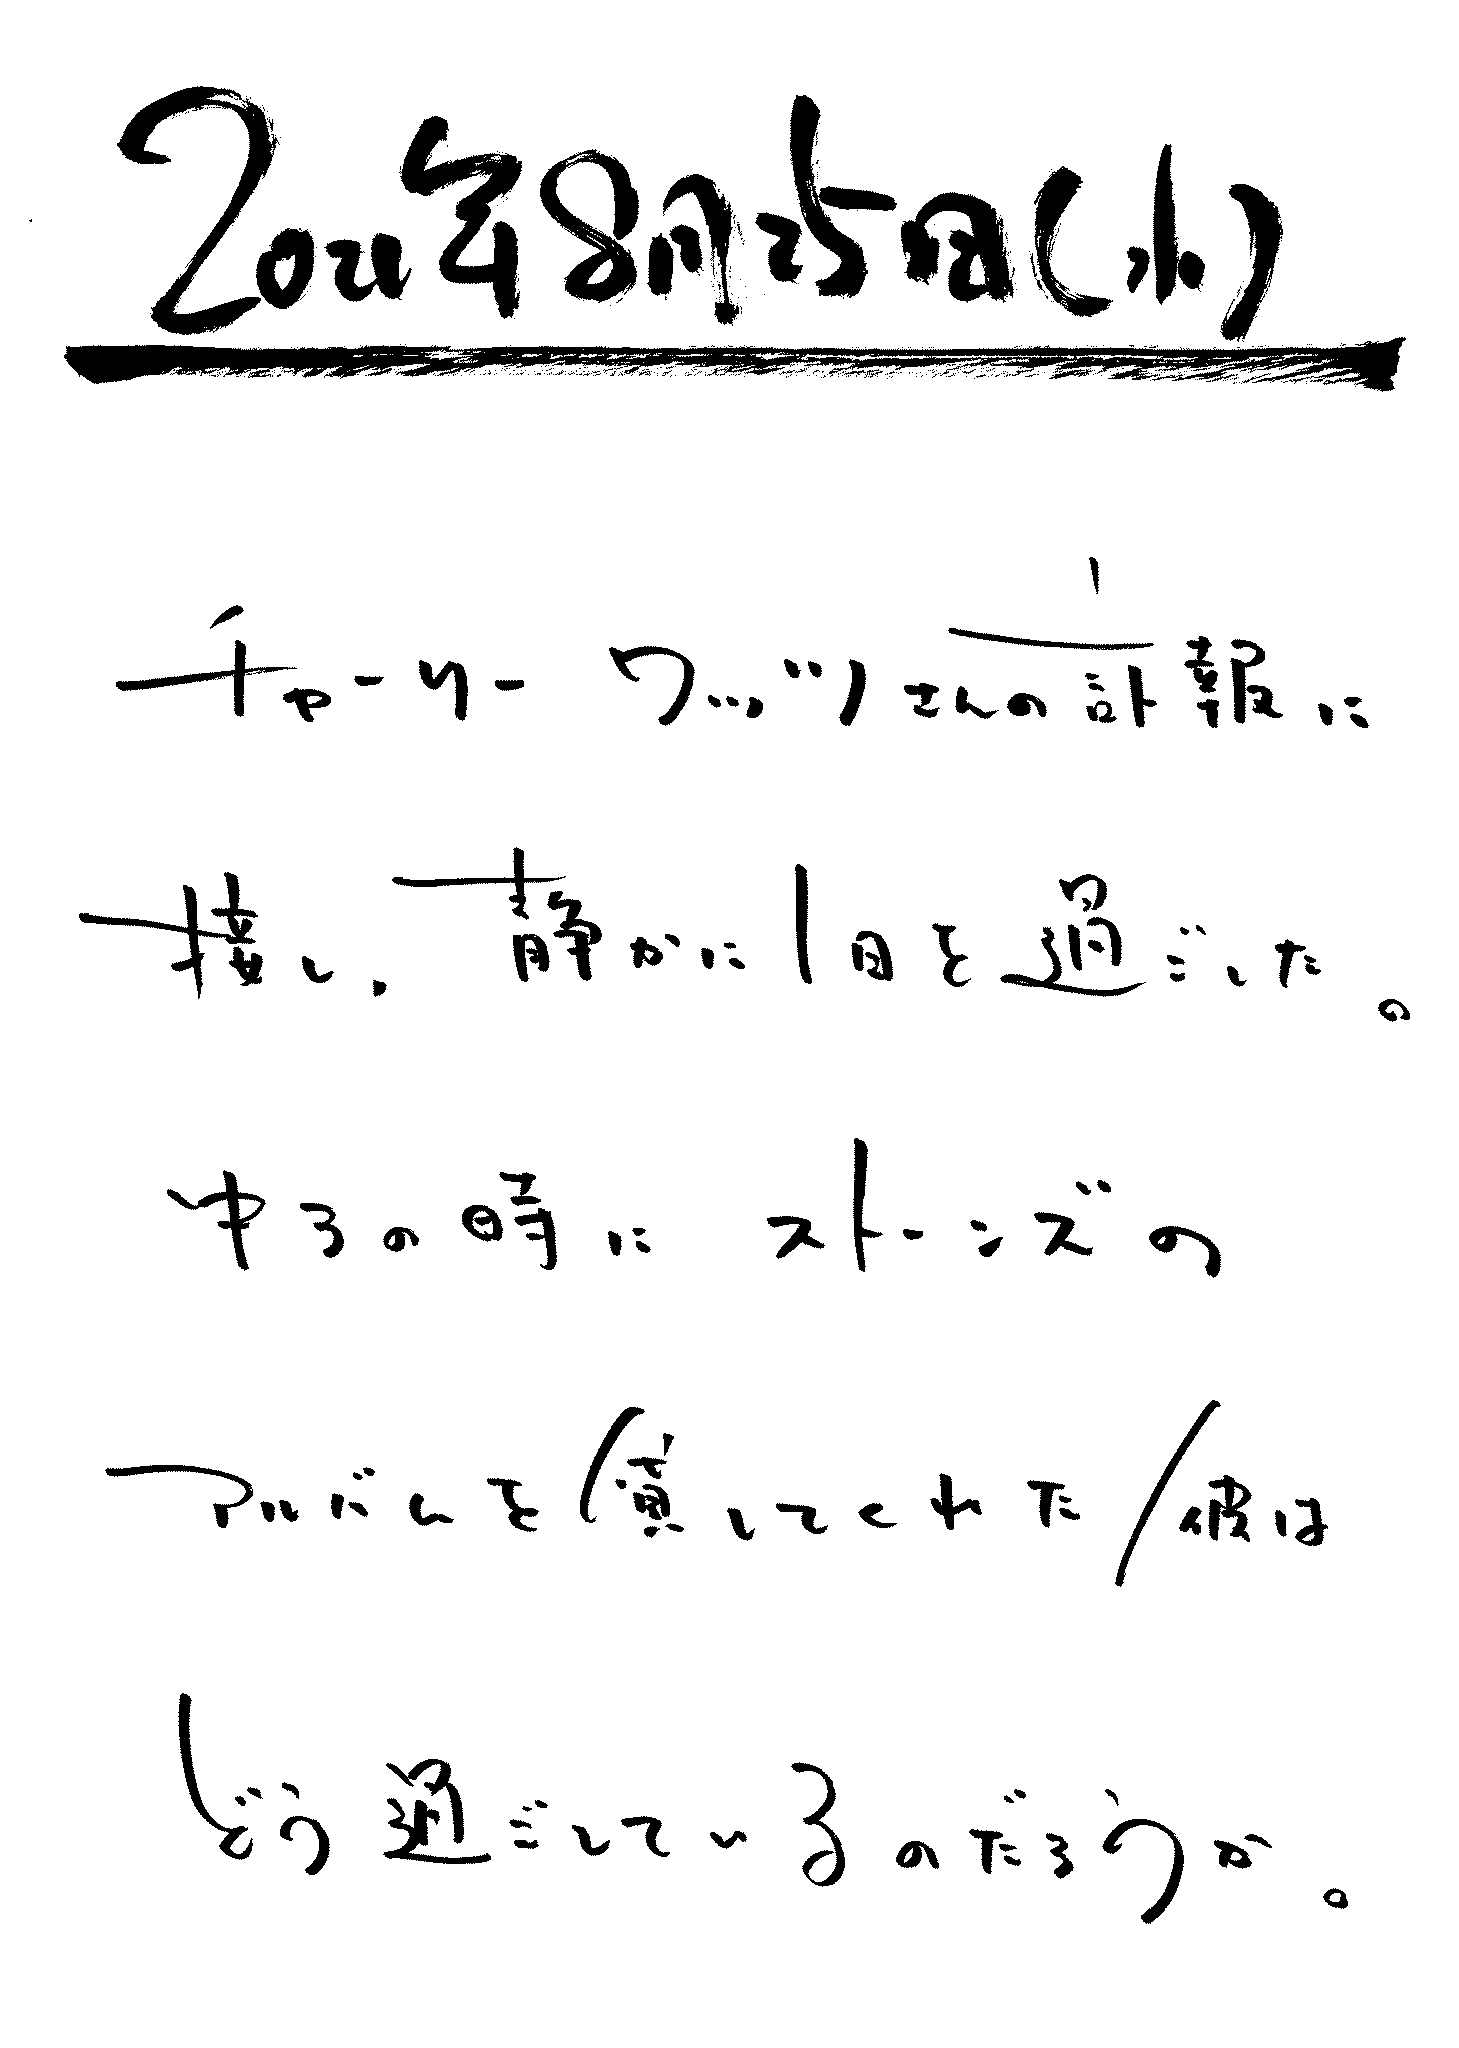 2021年8月25日(水)
チャーリーワッツさんの訃報に
接し、静かに1日を過ごした。
中3の時にストーンズの
アルバムを貸してくれた彼は
どう過ごしているのだろうか。